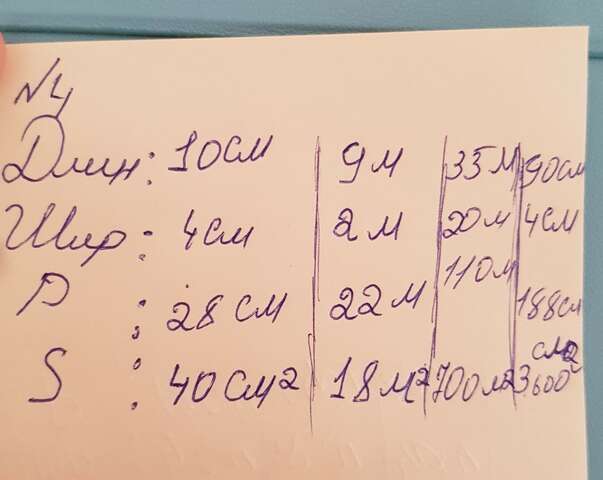 №4
Длин: 10см 9м 35м 90см
Шир: 4см 2м 20м 4см
P: 28см 22м 110м 188см
S: 40см² 18м² 700м² 3600 см²